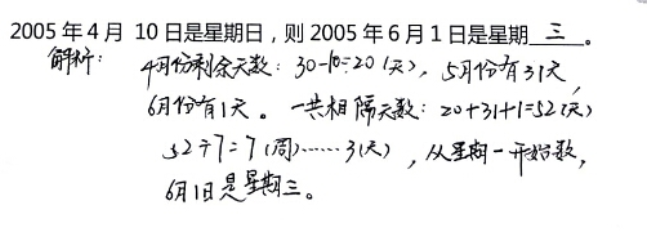 2005年4月 10日是星期日，则2005年6月1日是星期 三 。
解析：4月份剩余天数：30-10=20(天)，5月份有31天，
6月份有1天。一共相隔天数：20+31+1=52(天)
52÷7=7(周)……3(天)，从星期一开始数，
6月1日是星期三。